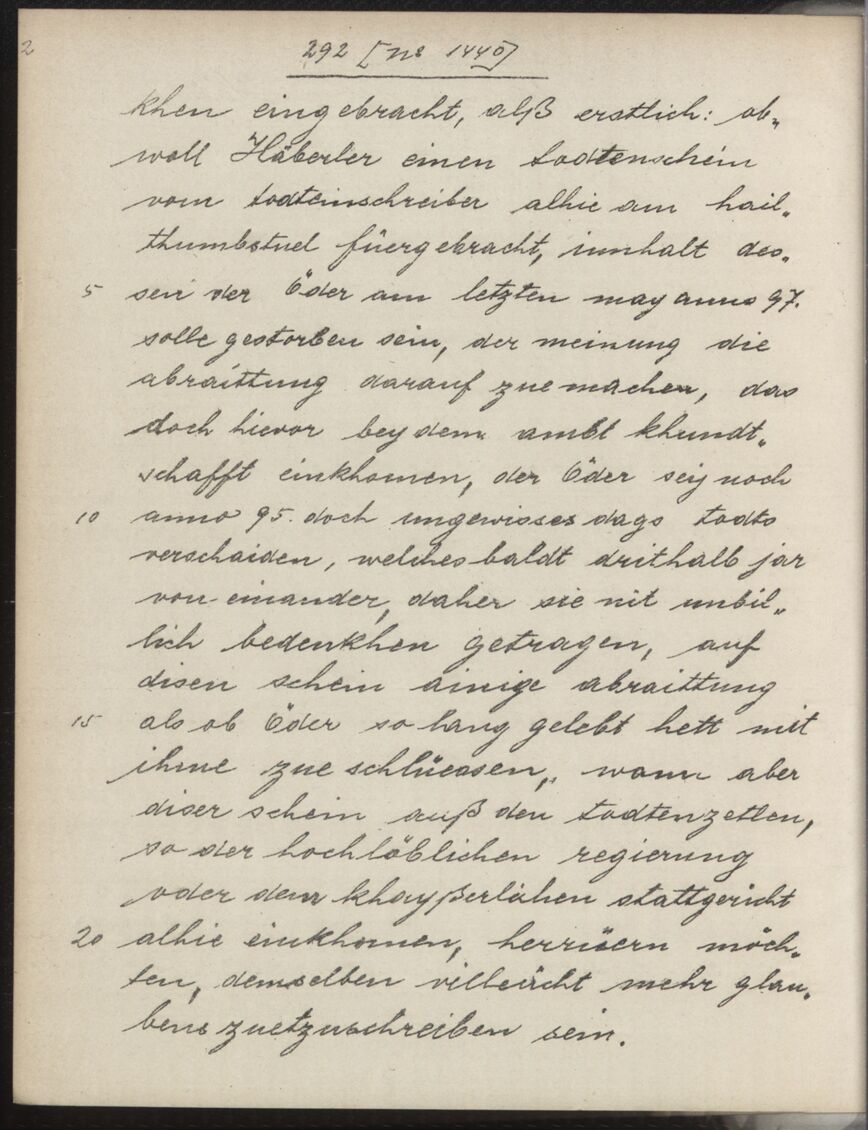 2
292 [No 1440]
khen eingebracht, alß erstlich: ob„
woll Häberler einen todtenschein
vom todteinschreiber alhie am hail„
thumbstuel füergebracht, innhalt des„
5 sen der Öder am letzten may anno 97.
solle gestorben sein, der meinung die
abraittung darauf zue machen, das
doch hievor bey dem ambt khundt„
schafft einkhomen, der Öder sey noch
10 anno 95. doch ungewisses dags todts
verschaiden, welches baldt drithalb jar
von einander, daher sie nit unbil„
lich bedenkhen getragen, auf
disen schein ainige abraittung
15 als ob Öder so lang gelebt hett mit
ihme zue schlüessen, wann aber
diser schein auß den todtenzetlen,
so der hochlöblichen regierung
oder dem khayßerlichen stattgericht
20 alhie einkhomen, herrüern möch„
ten, demselben villeicht mehr glau„
bens zuetzuschreiben sein.